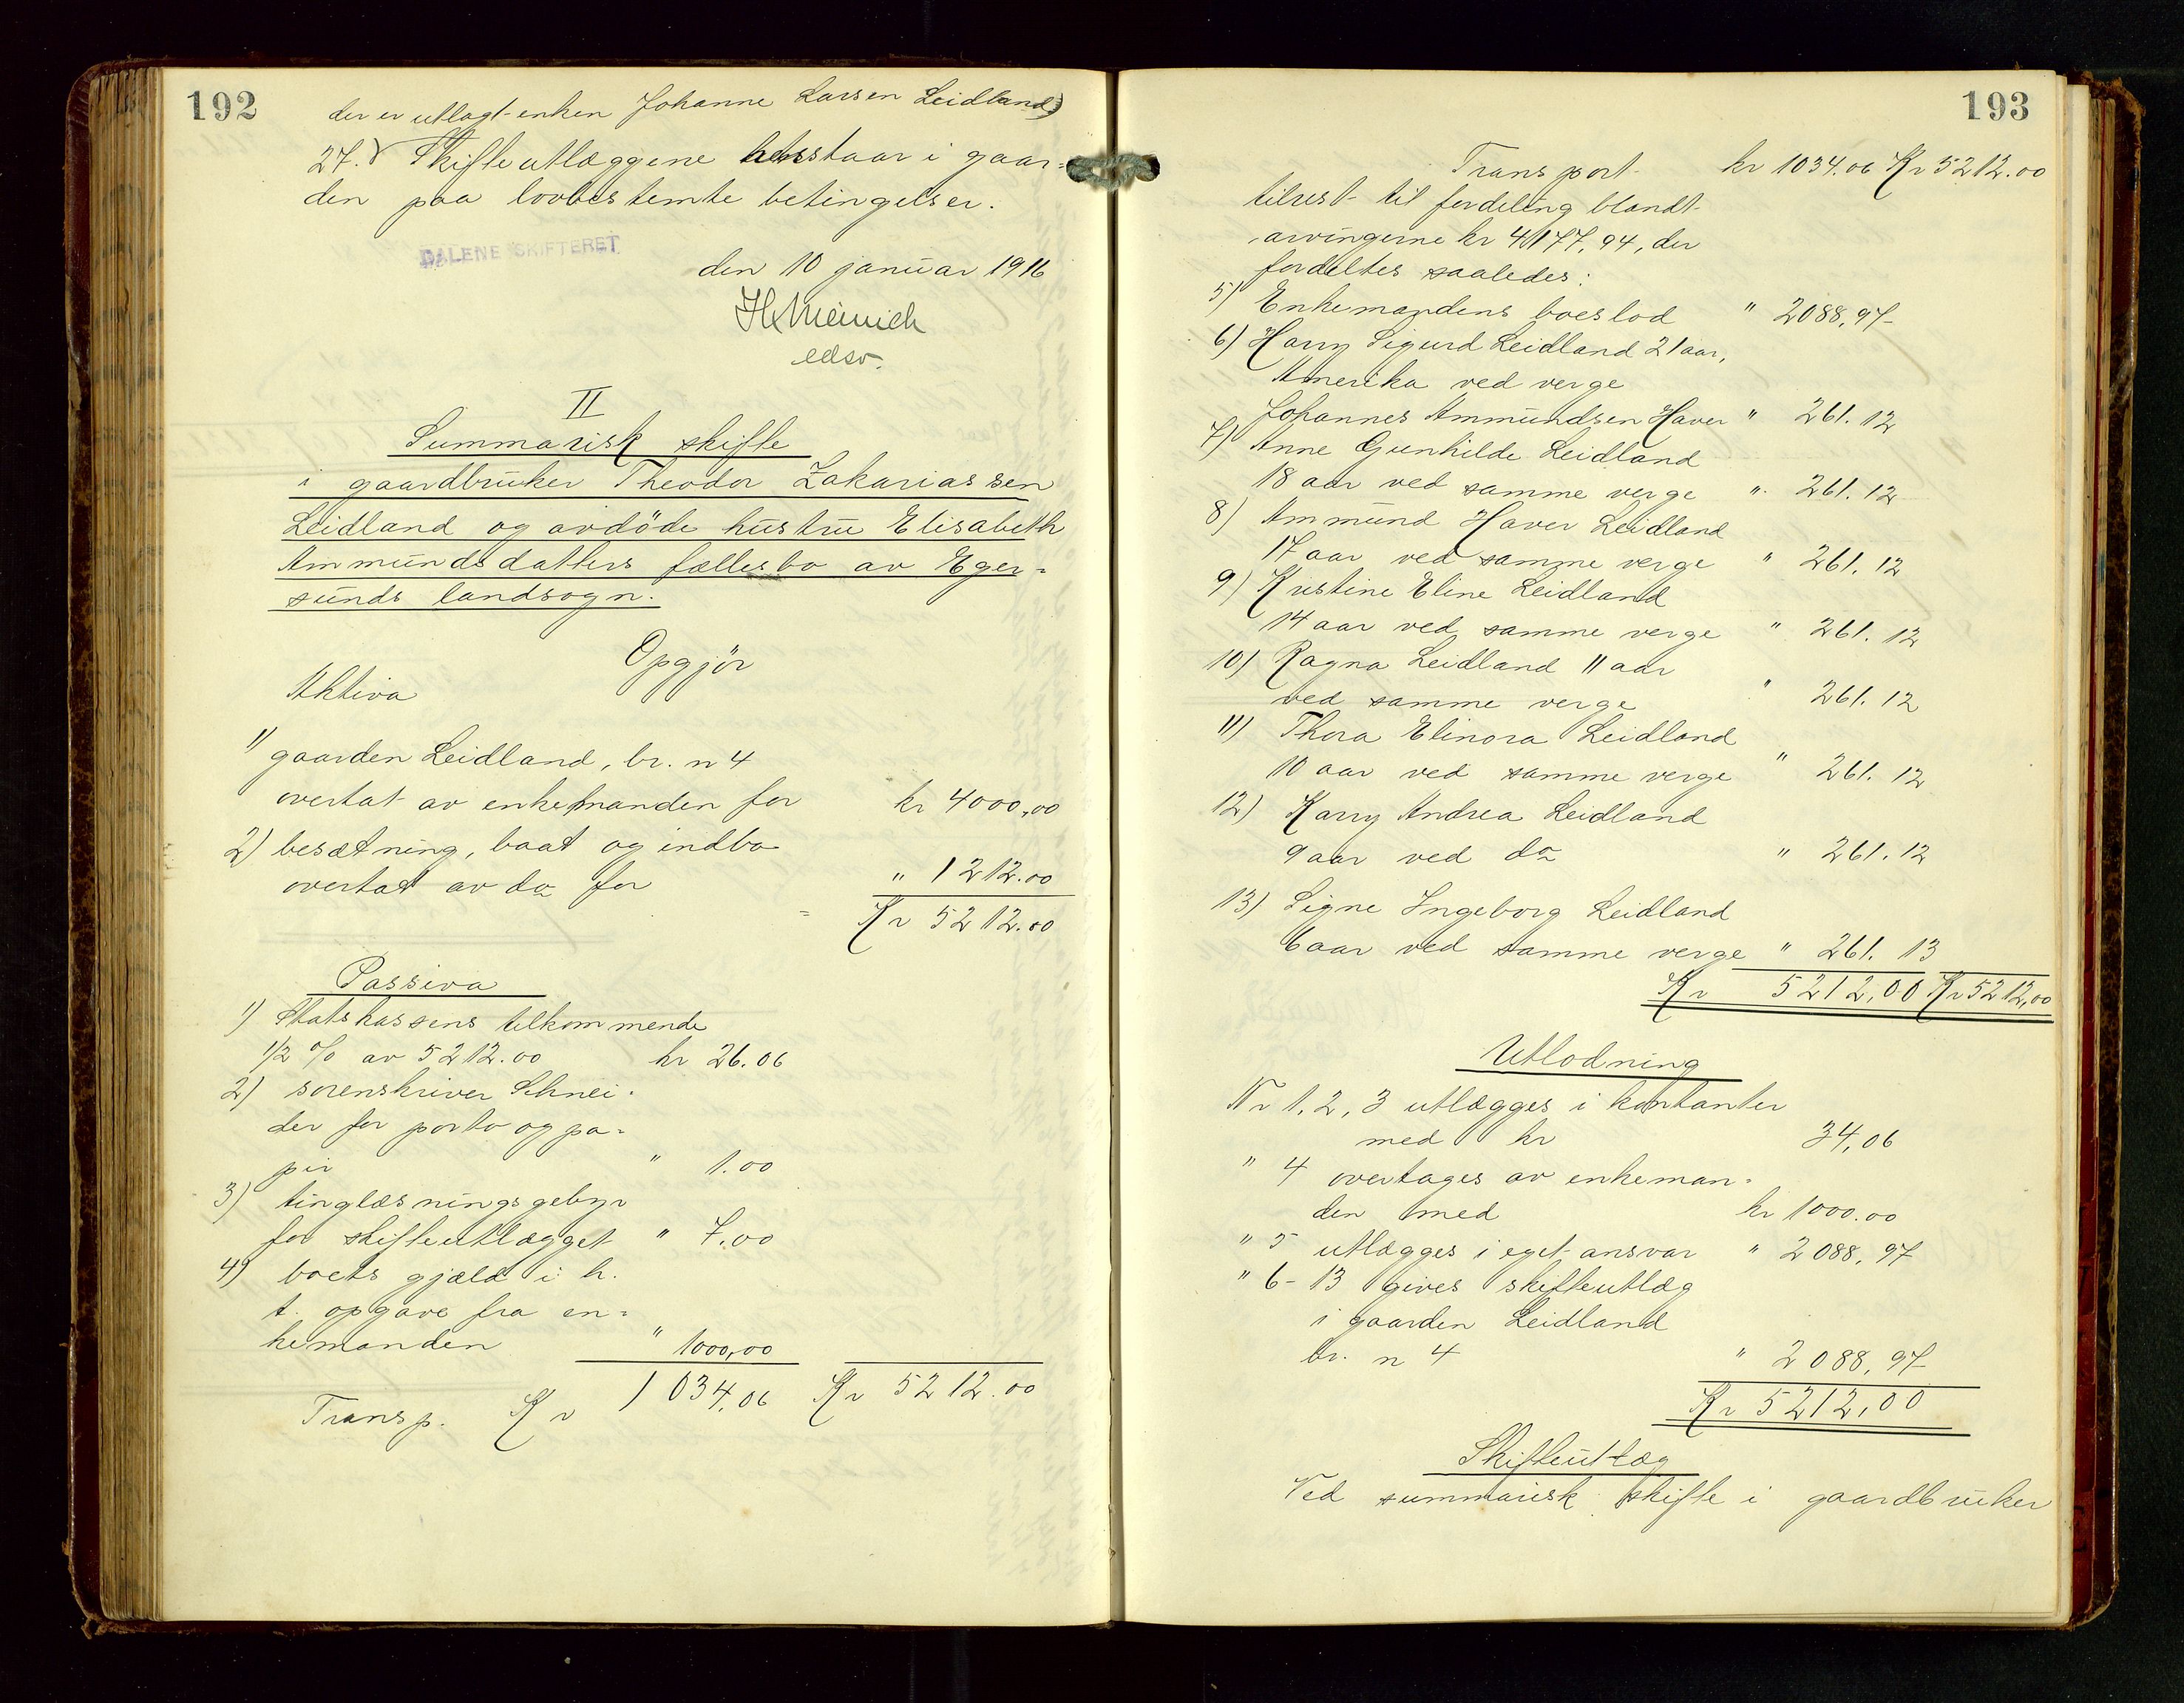 192
der er utlagt enken Johanne Larsen Leidland)
27. Skifteutlæggene henstaar i gaar=
den paa lovbestemte betingelser.
DALENE SKIFTERET
den 10 januar 1916
edsv.
II
Summarisk skifte
i gaardbruker Theodor Zakariassen
Leidland og avdöde hustru Elisabeth
Ammundsdatters fællesbo av Eger=
sunds landsogn.
Opgjör
Aktiva
1) gaarden Leidland, br. n 4
overtat av enkemanden for kr 4000,00
2) besætning, baat og indbo
overtat av do for " 1212.00
= Kr 5212.00
Passiva
1) Statskassens tilkommende
1/2 % av 5212.00 kr 26.06
2) sorenskriver Schnei=
der for porto og pa=
pir " 1.00
3) tinglæsningsgebyr
for skifteutlægget " 7.00
4) boets gjæld i h.
t. opgave fra en=
kemanden " 1000,00
Transp. Kr 1034,06 Kr 5212.00
193
Transport kr 1034.06 Kr 5212.00
tilrest til fordeling blandt
arvingerne kr 4177,94, der
fordeltes saaledes:
5) Enkemandens boeslod " 2088,97
6) Harry Sigurd Leidland 21 aar,
Amerika ved verge
Johannes Ammundsen Haver " 261.12
7) Anne Gunhilde Leidland
18 aar ved samme verge " 261.12
8) Ammund Haver Leidland
17 aar ved samme verge " 261.12
9) Kristine Eline Leidland
14 aar ved samme verge " 261.12
10) Ragna Leidland 11 aar
ved samme verge " 261.12
11) Thora Elinora Leidland
10 aar ved samme verge " 261.12
12) Karry Andrea Leidland
9 aar ved do " 261.12
13) Signe Ingeborg Leidland
6 aar ved samme verge " 261.13
Kr 5212,00 Kr 5212,00
Utlodning
Nr 1, 2, 3 utlægges i kontanter
med kr 34,06
" 4 overtages av enkeman=
den med kr 1000.00
" 5 utlægges i eget ansvar " 2088,97
" 6-13 gives skifteutlæg
i gaarden Leidland
br. n 4 " 2088,97
Kr 5212,00
Skifteutlæg
Ved summarisk skifte i gaardbruker